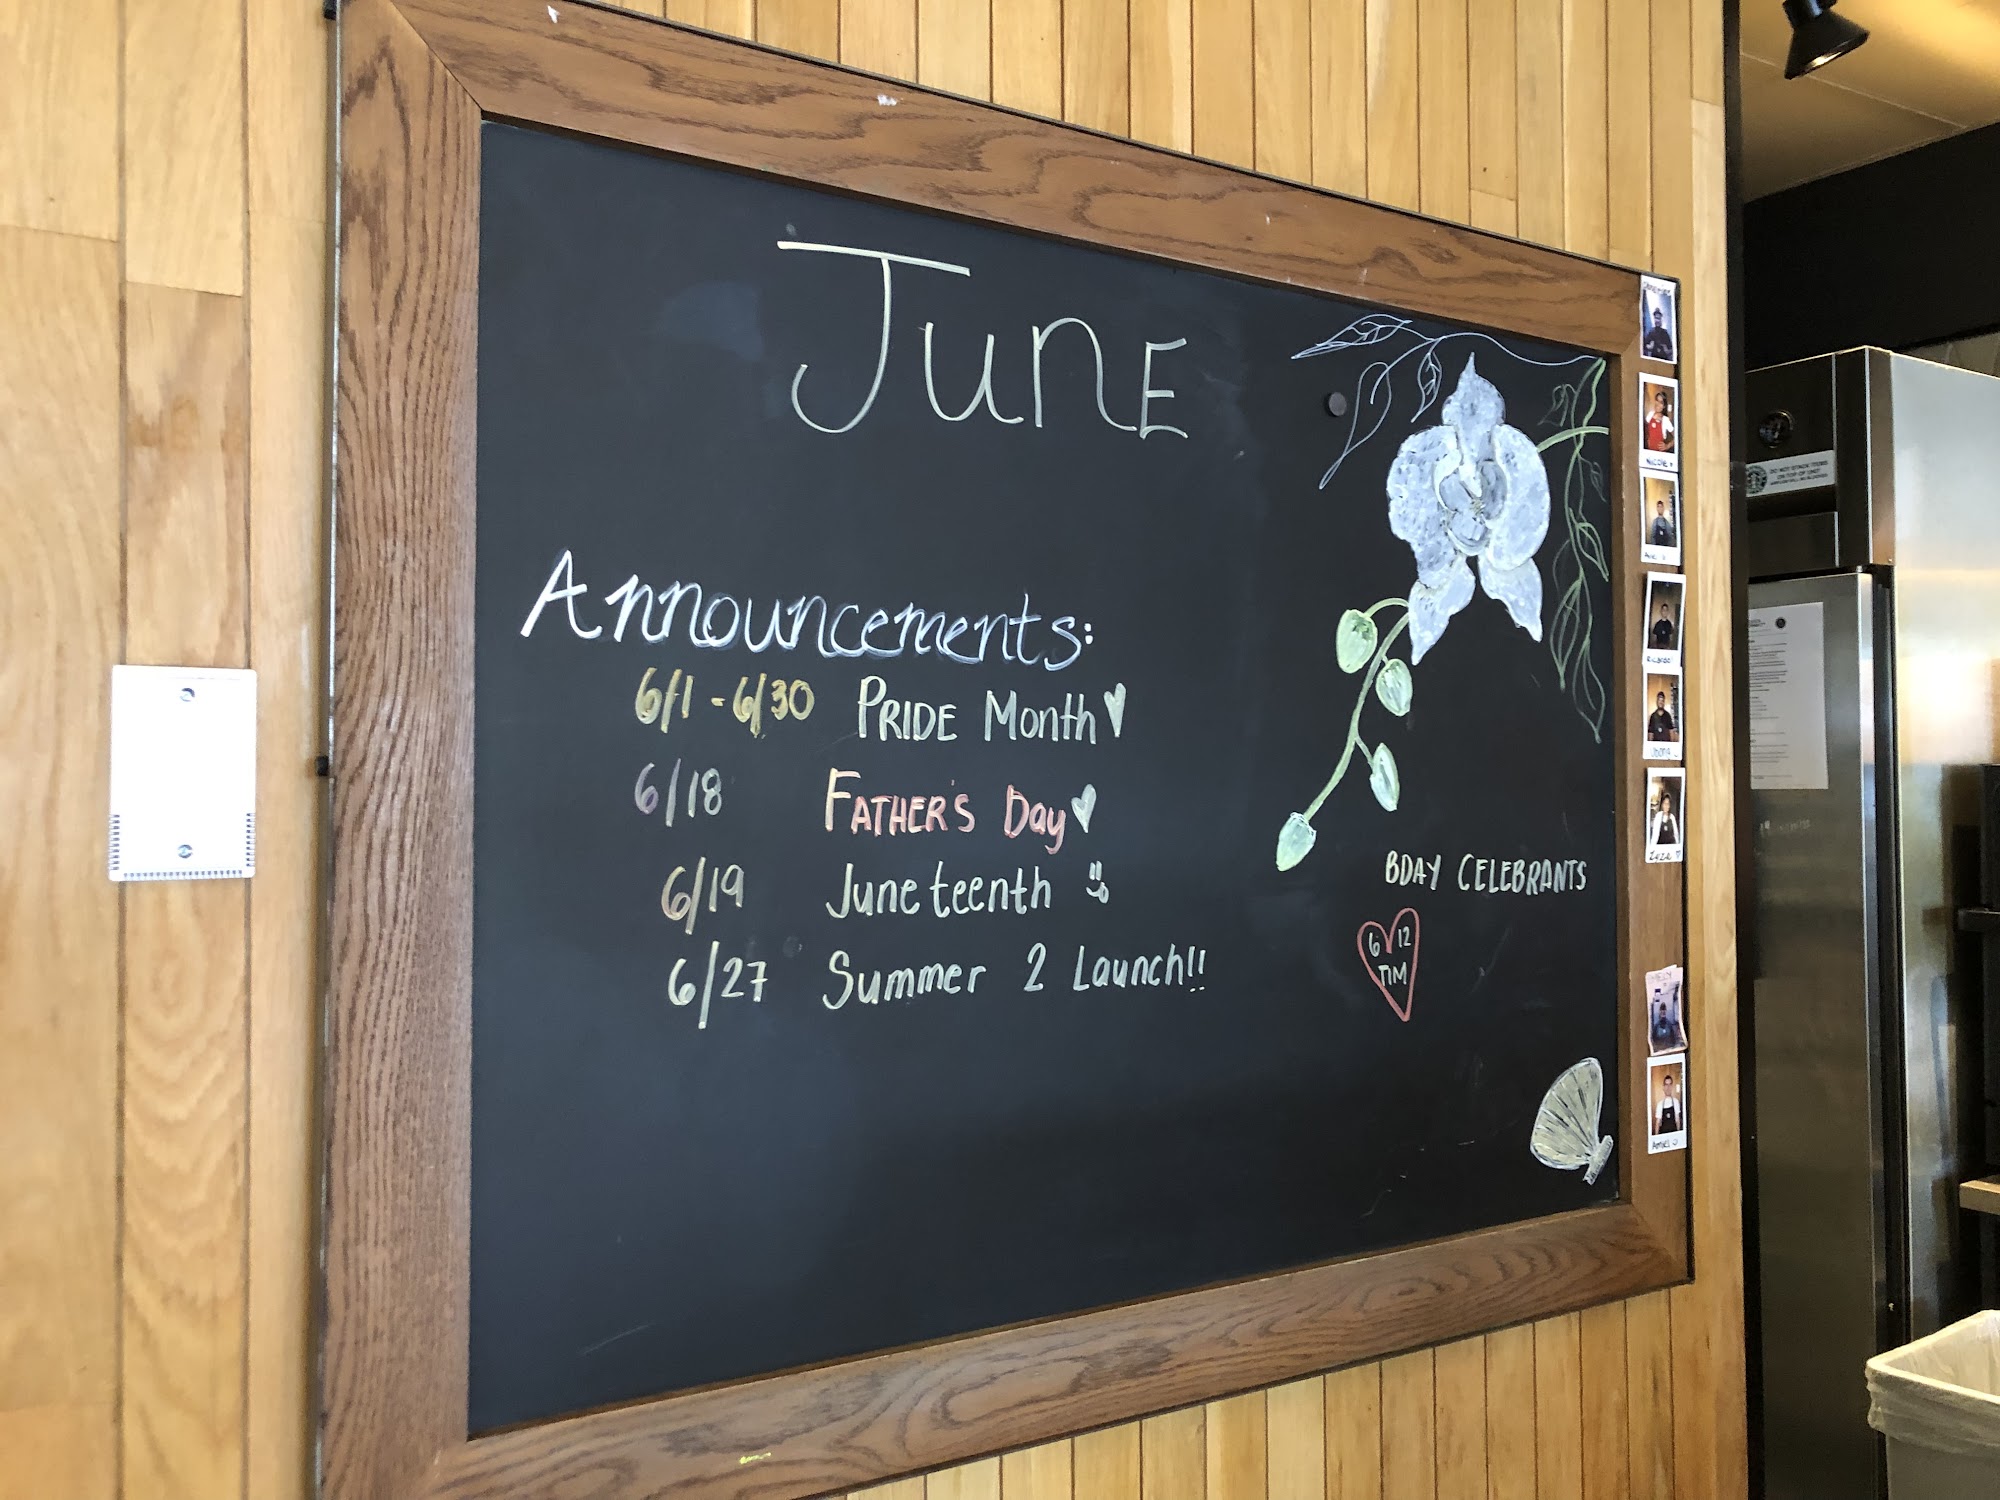 June
Announcements:
6/1 - 6/30 PRIDE Month
6/18 FATHER'S Day
6/19 Juneteenth
6/27 Summer 2 Launch!!
BDAY CELEBRANTS
6 12
TIM
NICOLE
Ricardo
DO NOT STACK ITEMS
ON TOP OF UNIT